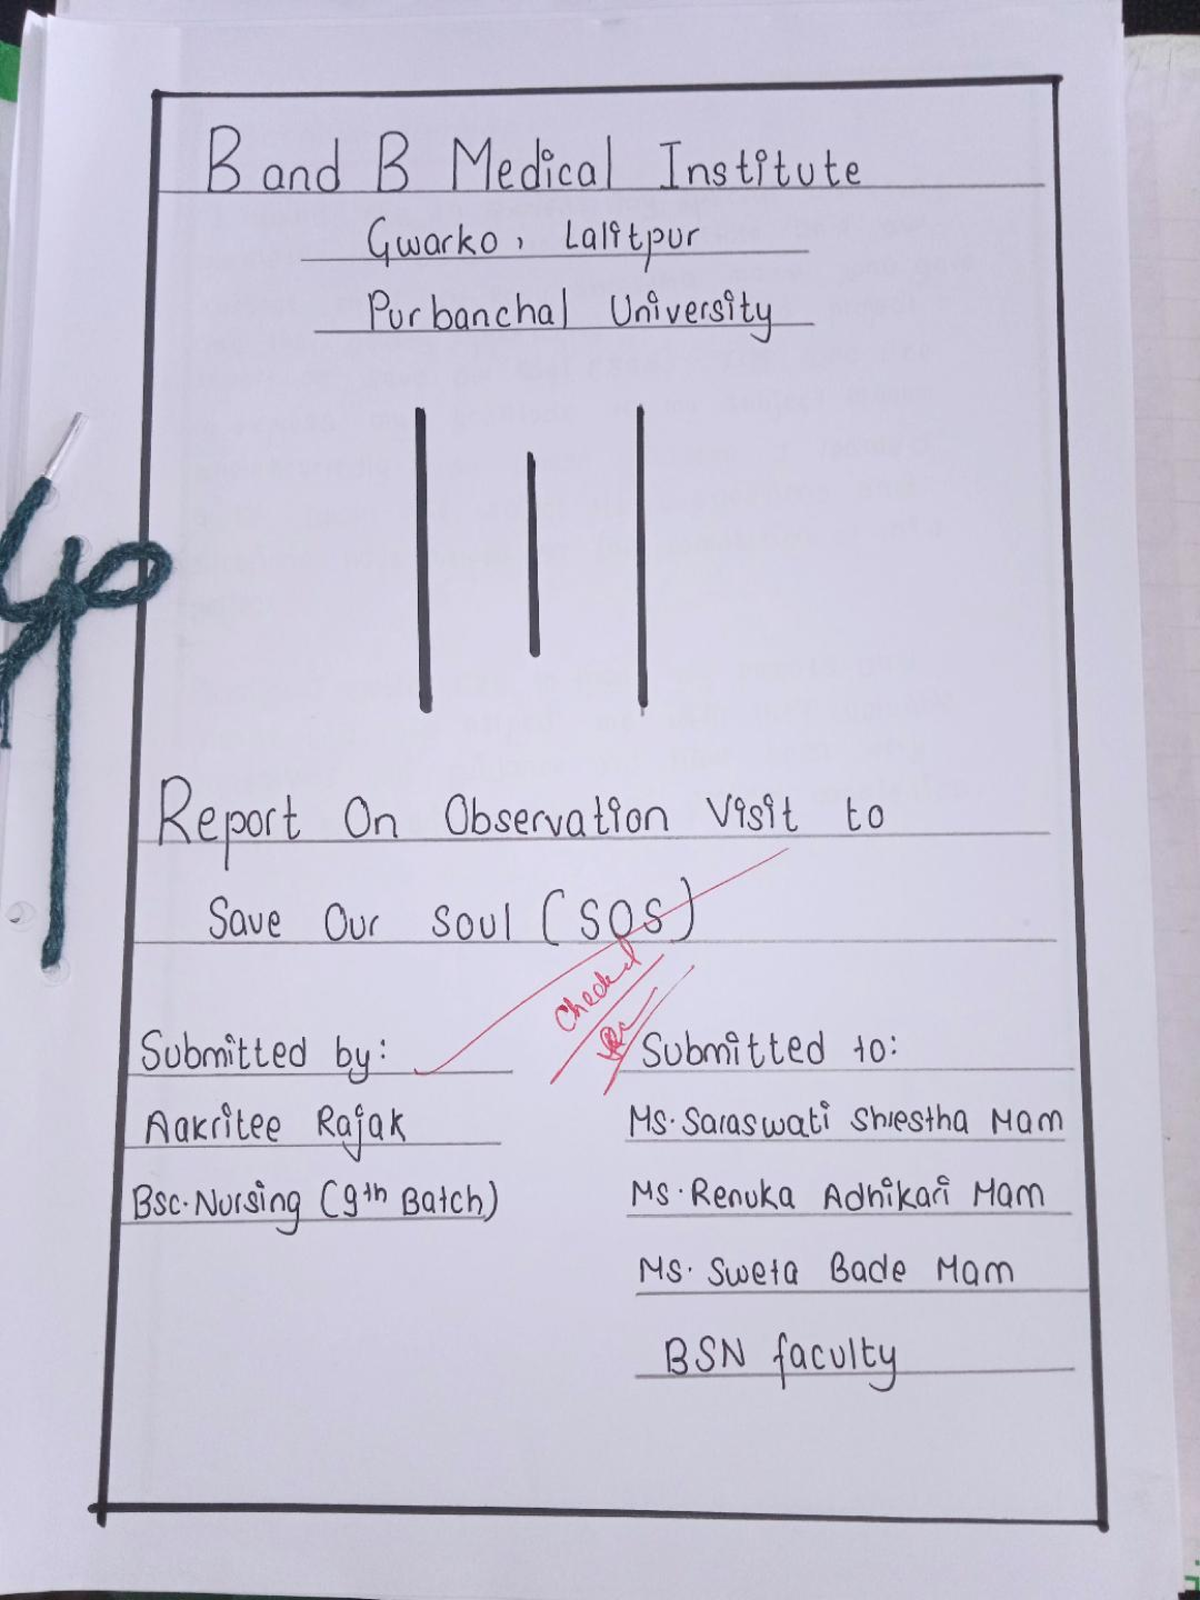 B and B Medical Institute
Gwarko, Lalitpur
Purbanchal University
Report On Observation Visit to
Save Our Soul (SOS)
Checked
Submitted by:
Aakritee Rajak
Bsc. Nursing (9th Batch)
Submitted to:
Ms. Saraswati Shrestha Mam
Ms. Renuka Adhikari Mam
Ms. Sweta Bade Mam
BSN faculty